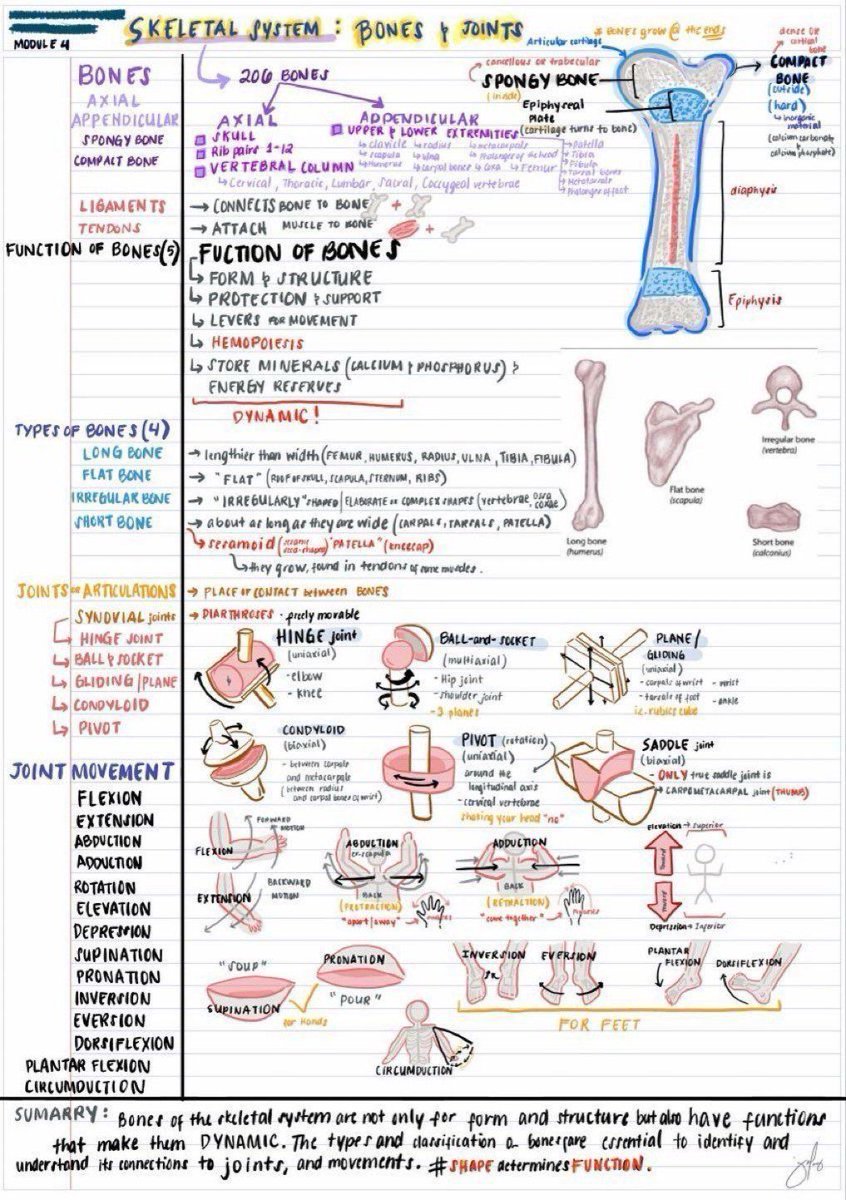 SKELETAL SYSTEM : BONES & JOINTS
MODULE 4
* BONES grow @ the ends
Articular cartilage
dense or
cortical
bone
COMPACT
BONE
(outside)
(hard)
↳ inorganic
material
(calcium carbonate
calcium phosphate)
cancellous or trabecular
SPONGY BONE
(inside)
Epiphyseal
Plate
(cartilage turns to bone)
diaphysis
Epiphysis
BONES
AXIAL
APPENDICULAR
SPONGY BONE
COMPACT BONE
206 BONES
AXIAL
SKULL
Rib pairs 1-12
VERTEBRAL COLUMN
↳ Cervical, Thoracic, Lumbar, Sacral, Coccygeal vertebrae
APPENDICULAR
UPPER & LOWER EXTREMITIES
↳ clavicle ↳ radius ↳ metacarpals
↳ scapula ↳ ulna
↳ Humerus ↳ carpal bones ↳ coxa ↳ Femur
↳ Patella
↳ Tibia
↳ Fibula
↳ Tarsal bones
↳ Metatarsals
LIGAMENTS
→ CONNECTS BONE TO BONE
+
TENDONS
→ ATTACH MUSCLE TO BONE
+
FUNCTION OF BONES(5)
FUCTION OF BONES
↳ FORM & STRUCTURE
↳ PROTECTION & SUPPORT
↳ LEVERS FOR MOVEMENT
↳ HEMOPOIESIS
↳ STORE MINERALS (CALCIUM & PHOSPHORUS) &
ENERGY RESERVES
DYNAMIC!
TYPES OF BONES (4)
LONG BONE
→ lengthier than width (FEMUR, HUMERUS, RADIUS, ULNA, TIBIA, FIBULA)
FLAT BONE
→ "FLAT" (ROOF OF SKULL, SCAPULA, STERNUM, RIBS)
IRREGULAR BONE
→ "IRREGULARLY" shaped | ELABORATE or COMPLEX SHAPES (vertebrae, ossa coxae)
SHORT BONE
→ about as long as they are wide (CARPALS, TARSALS, PATELLA)
"PATELLA" (kneecap)
↳ they grow, found in tendons of some muscles.
Long bone
(humerus)
Flat bone
(scapula)
Irregular bone
(vertebra)
Short bone
(calconius)
JOINTS or ARTICULATIONS
→ PLACE OF CONTACT between BONES
SYNOVIAL joints
→ DIARTHROSES · freely movable
↳ HINGE JOINT
↳ BALL & SOCKET
↳ GLIDING / PLANE
↳ CONDYLOID
↳ PIVOT
HINGE joint
(uniaxial)
- elbow
- knee
BALL-and-SOCKET
(multiaxial)
- Hip joint
- shoulder joint
- 3 planes
PLANE/
GLIDING
(uniaxial)
- carpals of wrist - wrist
- tarsals of foot - ankle
ie. rubics cube
CONDYLOID
(biaxial)
- between carpals
and metacarpals
(between radius
and carpal bones of wrist)
PIVOT (rotation)
(uniaxial)
around the
longitudinal axis
- cervical vertebrae
shaking your head "no"
SADDLE joint
(biaxial)
- ONLY true saddle joint is
↳ CARPOMETACARPAL joint (THUMB)
JOINT MOVEMENT
FLEXION
EXTENSION
ABDUCTION
ADDUCTION
ROTATION
ELEVATION
DEPRESSION
SUPINATION
PRONATION
INVERSION
EVERSION
DORSIFLEXION
PLANTAR FLEXION
CIRCUMDUCTION
FORWARD
MOTION
FLEXION
BACKWARD
MOTION
EXTENSION
ABDUCTION
ex-scapula
BACK
(PROTRACTION)
"apart/away"
ADDUCTION
BACK
(RETRACTION)
"come together"
Elevation → Superior
Depression → Inferior
"SOUP"
SUPINATION
PRONATION
"POUR"
for Hands
INVERSION
EVERSION
PLANTAR
FLEXION
DORSIFLEXION
FOR FEET
CIRCUMDUCTION
SUMARRY: Bones of the skeletal system are not only for form and structure but also have functions
that make them DYNAMIC. The types and classification
are essential to identify and
understand its connections to joints, and movements. #SHAPE determines FUNCTION.